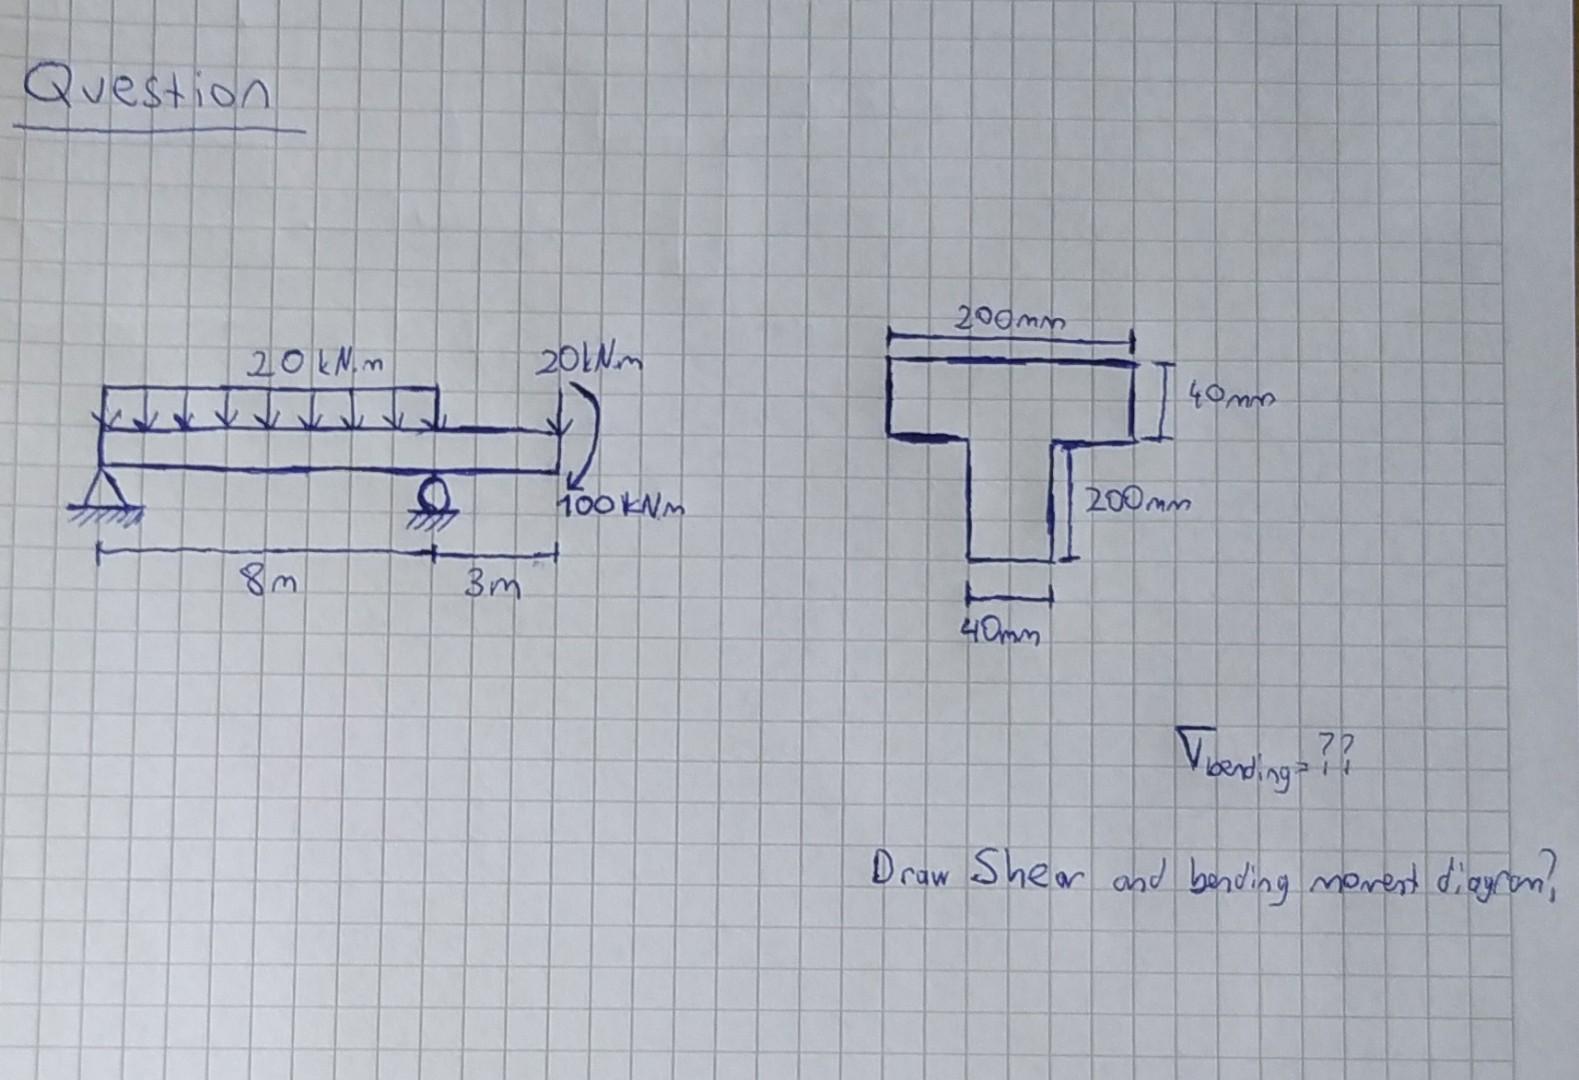 Question
200mm
20kN.m 20kN.m
40mm
100kNm
200mm
8m 3m
40mm
σbending=??
Draw Shear and bending moment diagram?